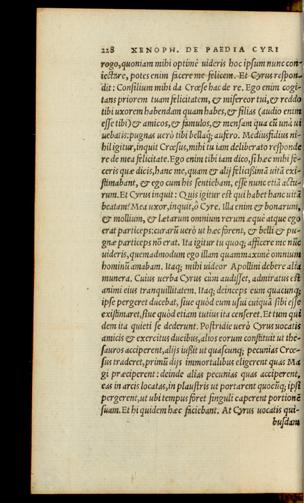 228 XENOPH. DE PAEDIA CYRI
rogo, quoniam mihi optimè uideris hoc ipsum nunc con-
iectare, potes enim facere me felicem. Et Cyrus respon-
dit: Consilium mihi da Crœse hac de re. Ego enim cogi-
tans priorem tuam felicitatem, & misereor tui, & reddo
tibi uxorem habendam quam habes, & filias (audio enim
esse tibi) & amicos, & famulos, & mensam qua cũ unà ui
uebatis: pugnas uerò tibi bellaq́; aufero. Mediusfidius ni-
hil igitur, inquit Crœsus, mihi tu iam deliberato respõde
re de mea felicitate. Ego enim tibi iam dico, si hæc mihi fe-
ceris quæ dicis, hanc me, quam & alij felicissimã uitã exi-
stimabant, & ego cum his sentiebam, esse nunc etiã actu-
rum. Et Cyrus inquit: Quis igitur est qui habet hanc uitã
beatam? Mea uxor, inquit, ô Cyre. illa enim & bonarum,
& mollium, & lætarum omnium rerum æquè atque ego
erat particeps: curarũ uerò ut hæc fierent, & belli & pu-
gnæ particeps nõ erat. Ita igitur tu quoq; afficere me nũc
uideris, quemadmodum ego illam quam maximè omnium
hominũ amabam. Itaq; mihi uideor Apollini debere alia
munera. Cuius uerba Cyrus cùm audisset, admiratus est
animi eius tranquillitatem. Itaq; deinceps eum quacunq;
ipse pergeret ducebat, siue quòd eum usui cuiquã sibi esse
existimaret, siue quòd etiam tutius ita censeret. Et tum qui
dem ita quieti se dederunt. Postridie uerò Cyrus uocatis
amicis & exercitus ducibus, alios eorum constituit ut the-
sauros acciperent, alijs iussit ut quascunq; pecunias Crœ-
sus traderet, primũ dijs immortalibus eligerent quas Ma
gi præciperent: deinde alias pecunias quas acciperent,
eas in arcis locatas, in plaustris ut portarent quocũq; ipsi
pergerent, ut ubi tempus foret singuli caperent portionẽ
suam. Et hi quidem hæc faciebant. At Cyrus uocatis qui-
busdam